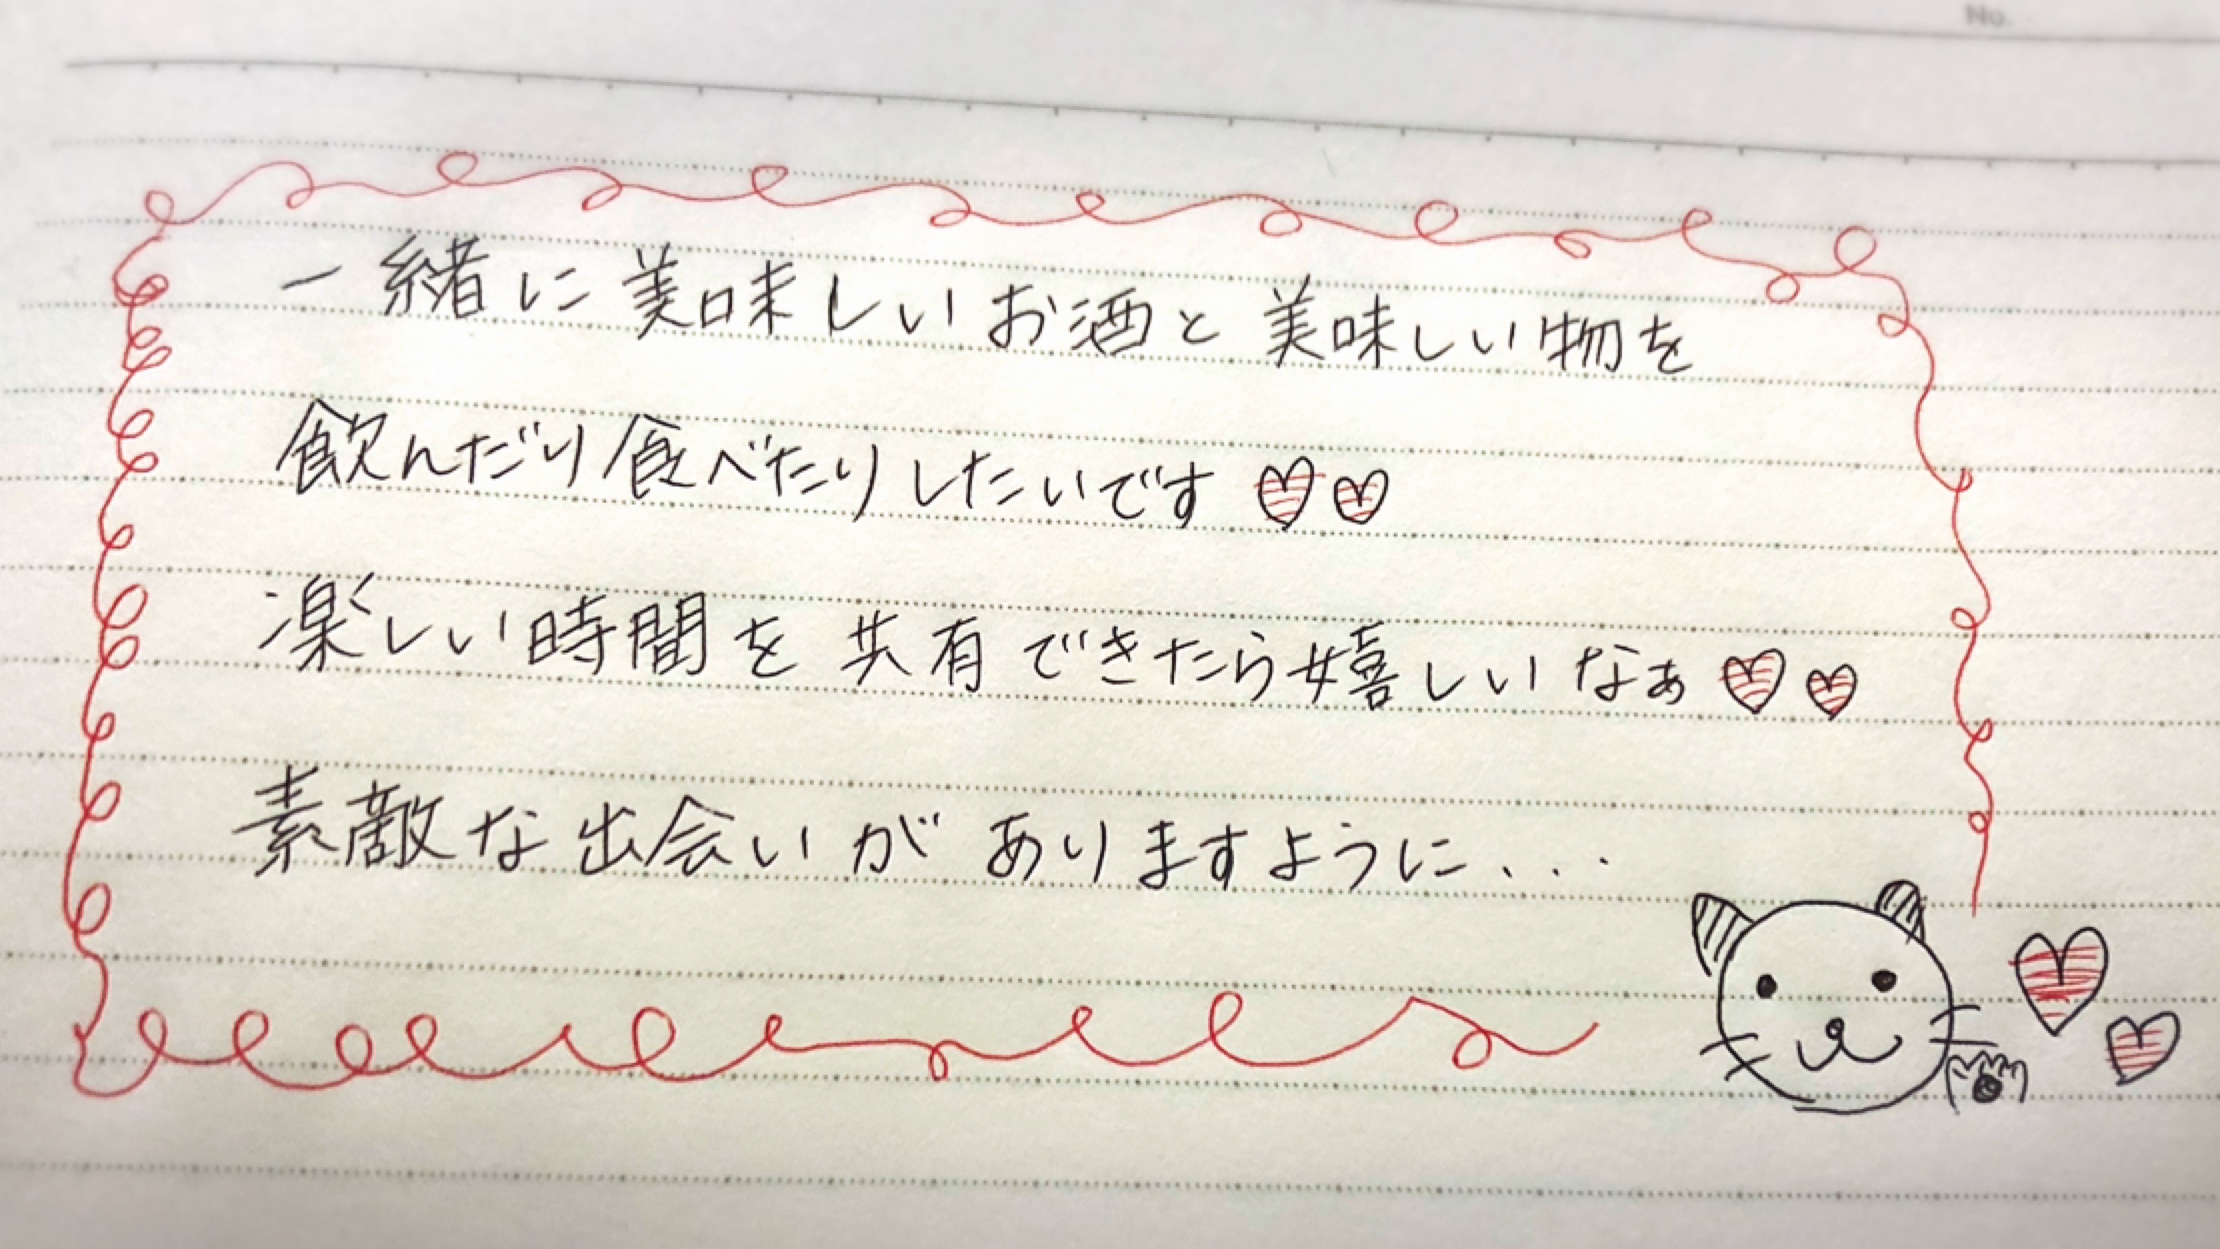 No.
一緒に美味しいお酒と美味しい物を
飲んだり食べたりしたいです♡♡
楽しい時間を共有できたら嬉しいなぁ♡♡
素敵な出会いがありますように...